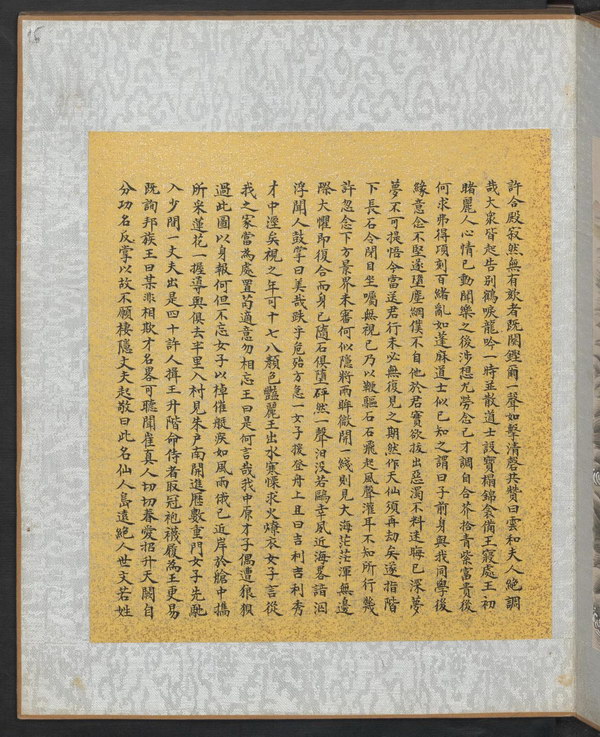 許合殿寂然無有欬者既闋鏗爾一聲如擊清磬共贊曰雲和夫人絕調
哉大衆皆起告別鶴唳龍吟一時並散道士設寶榻錦衾備王寢處王初
睹麗人心情已動聞樂之後涉想尤勞念己才調自合芥拾青紫富貴後
何求弗得頃刻百緒亂如蓬麻道士似已知之謂曰子前身與我同學後
緣意念不堅遂墮塵網僕不自他於君實欲拔出惡濁不料迷晦已深夢
夢不可提悟今當送君行未必無復見之期然作天仙須再劫矣遂指階
下長石令閉目坐囑無視已乃以鞭驅石石飛起風聲灌耳不知所行幾
許忽念下方景界未審何似隱將兩眸微開一綫則見大海茫茫渾無邊
際大懼即復合而身已隨石俱墮砰然一聲汩沒若鷗幸夙近海畧諳泅
浮聞人鼓掌曰美哉跌乎危殆方急一女子援登舟上且曰吉利吉利秀
才中溼矣視之年可十七八顏色豔麗王出水寒慄求火燎衣女子言從
我之家當為處置苟適意勿相忘王曰是何言哉我中原才子偶遭狼狽
過此圖以身報何但不忘女子以棹催艇疾如風雨俄已近岸於艙中攜
所采蓮花一握導與俱去半里入村見朱戶南開進歷數重門女子先馳
入少間一丈夫出是四十許人揖王升階命侍者取冠袍襪履為王更易
既詢邦族王曰某非相欺才名畧可聽聞崔真人切切眷愛招升天闕自
分功名反掌以故不願棲隱丈夫起敬曰此名仙人島遠絕人世文若姓